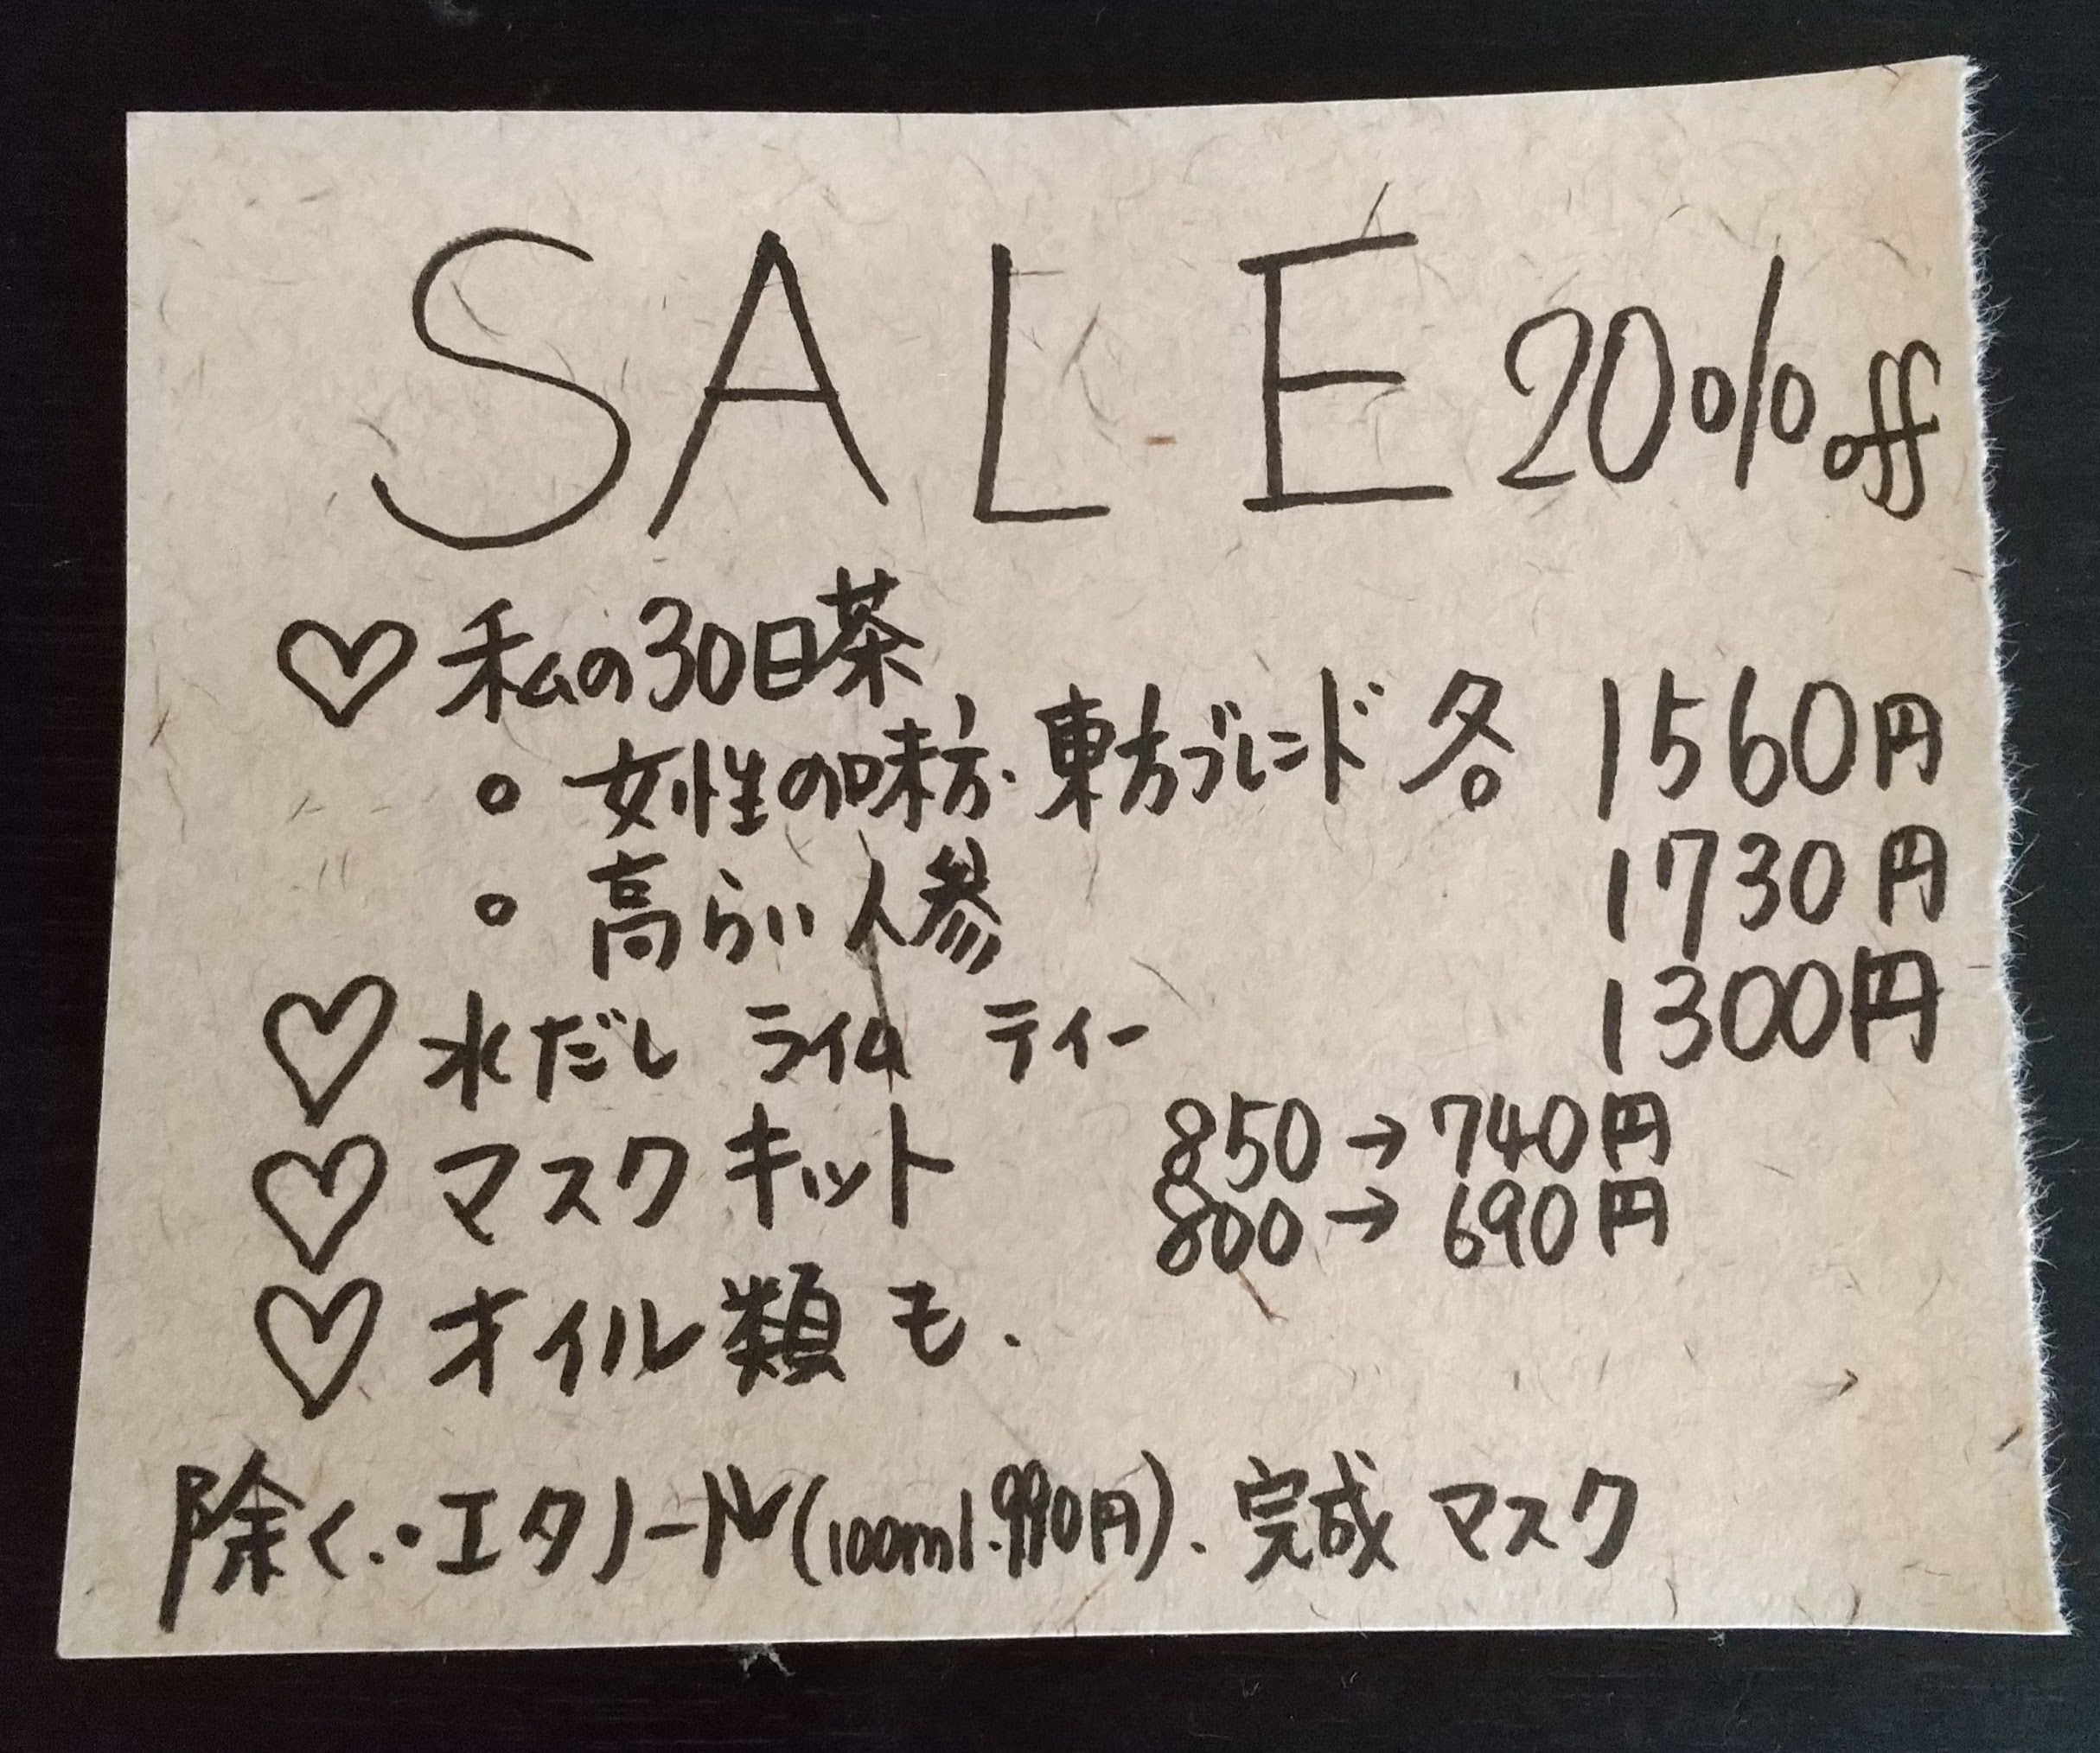 SALE 20%off
♡ 私の30日茶
。女性の味方・東方ブレンド 各 1560円
。高らい人参 1730円
♡ 水だし ライム ティー 1300円
♡ マスク キット 850→740円
800→690円
♡ オイル類 も.
除く.・エタノール(100ml.990円). 完成 マスク